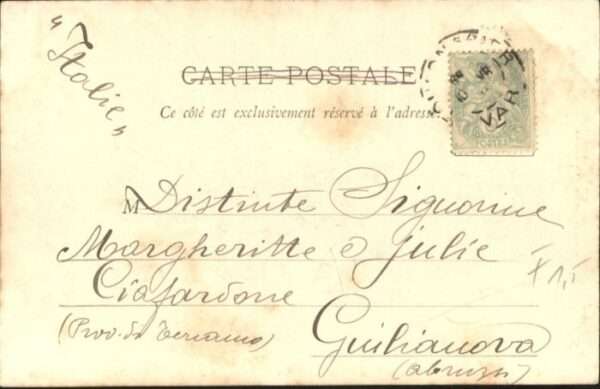 "Italie"
CARTE POSTALE
Ce côté est exclusivement réservé à l'adresse.
VAR
POSTES
M Distinte Signorine
Margheritte e Julie
Ciafardone
(Prov. di Teramo)
Giulianova
(Abruzzi)